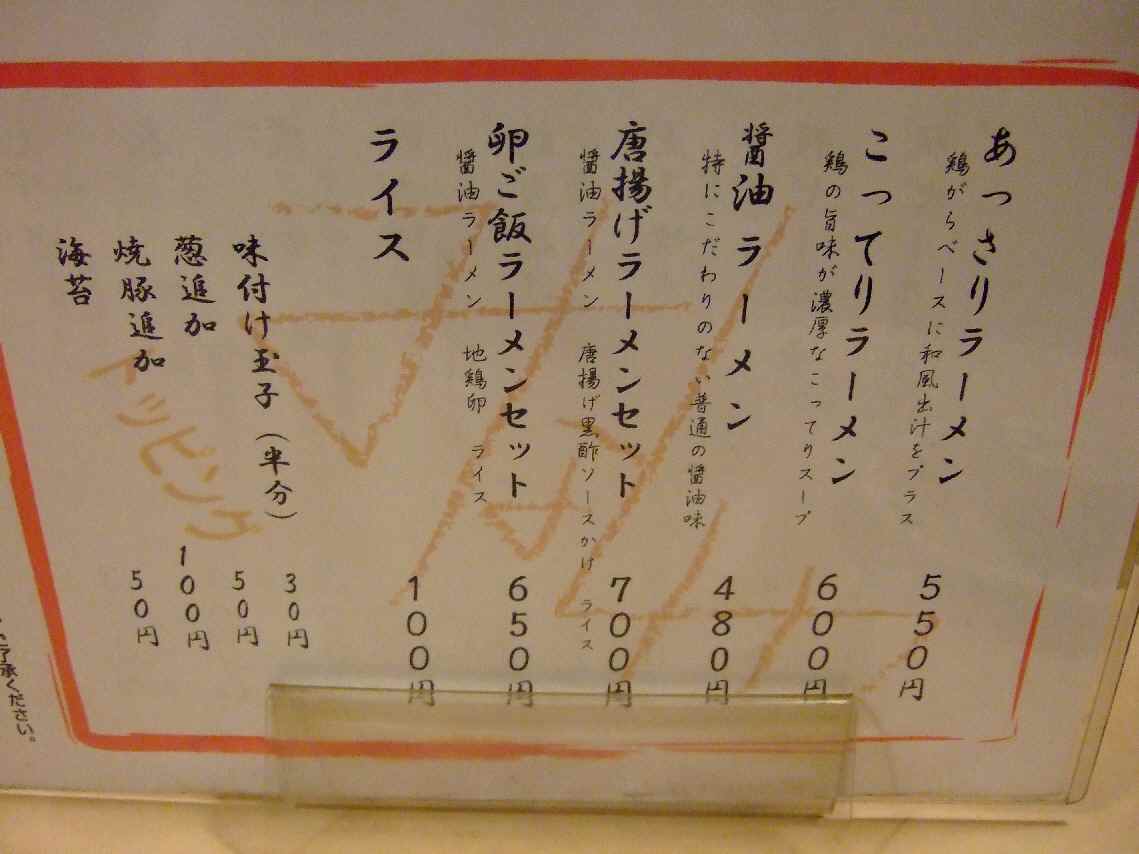 あっさりラーメン
鶏がらベースに和風出汁をプラス
550円
こってりラーメン
鶏の旨味が濃厚なこってりスープ
600円
醤油ラーメン
特にこだわりのない普通の醤油味
480円
唐揚げラーメンセット
醤油ラーメン 唐揚げ黒酢ソースかけ ライス
700円
卵ご飯ラーメンセット
醤油ラーメン 地鶏卵 ライス
650円
ライス
100円
トッピング
味付け玉子(半分)
30円
葱追加
50円
焼豚追加
100円
海苔
50円
了承ください。